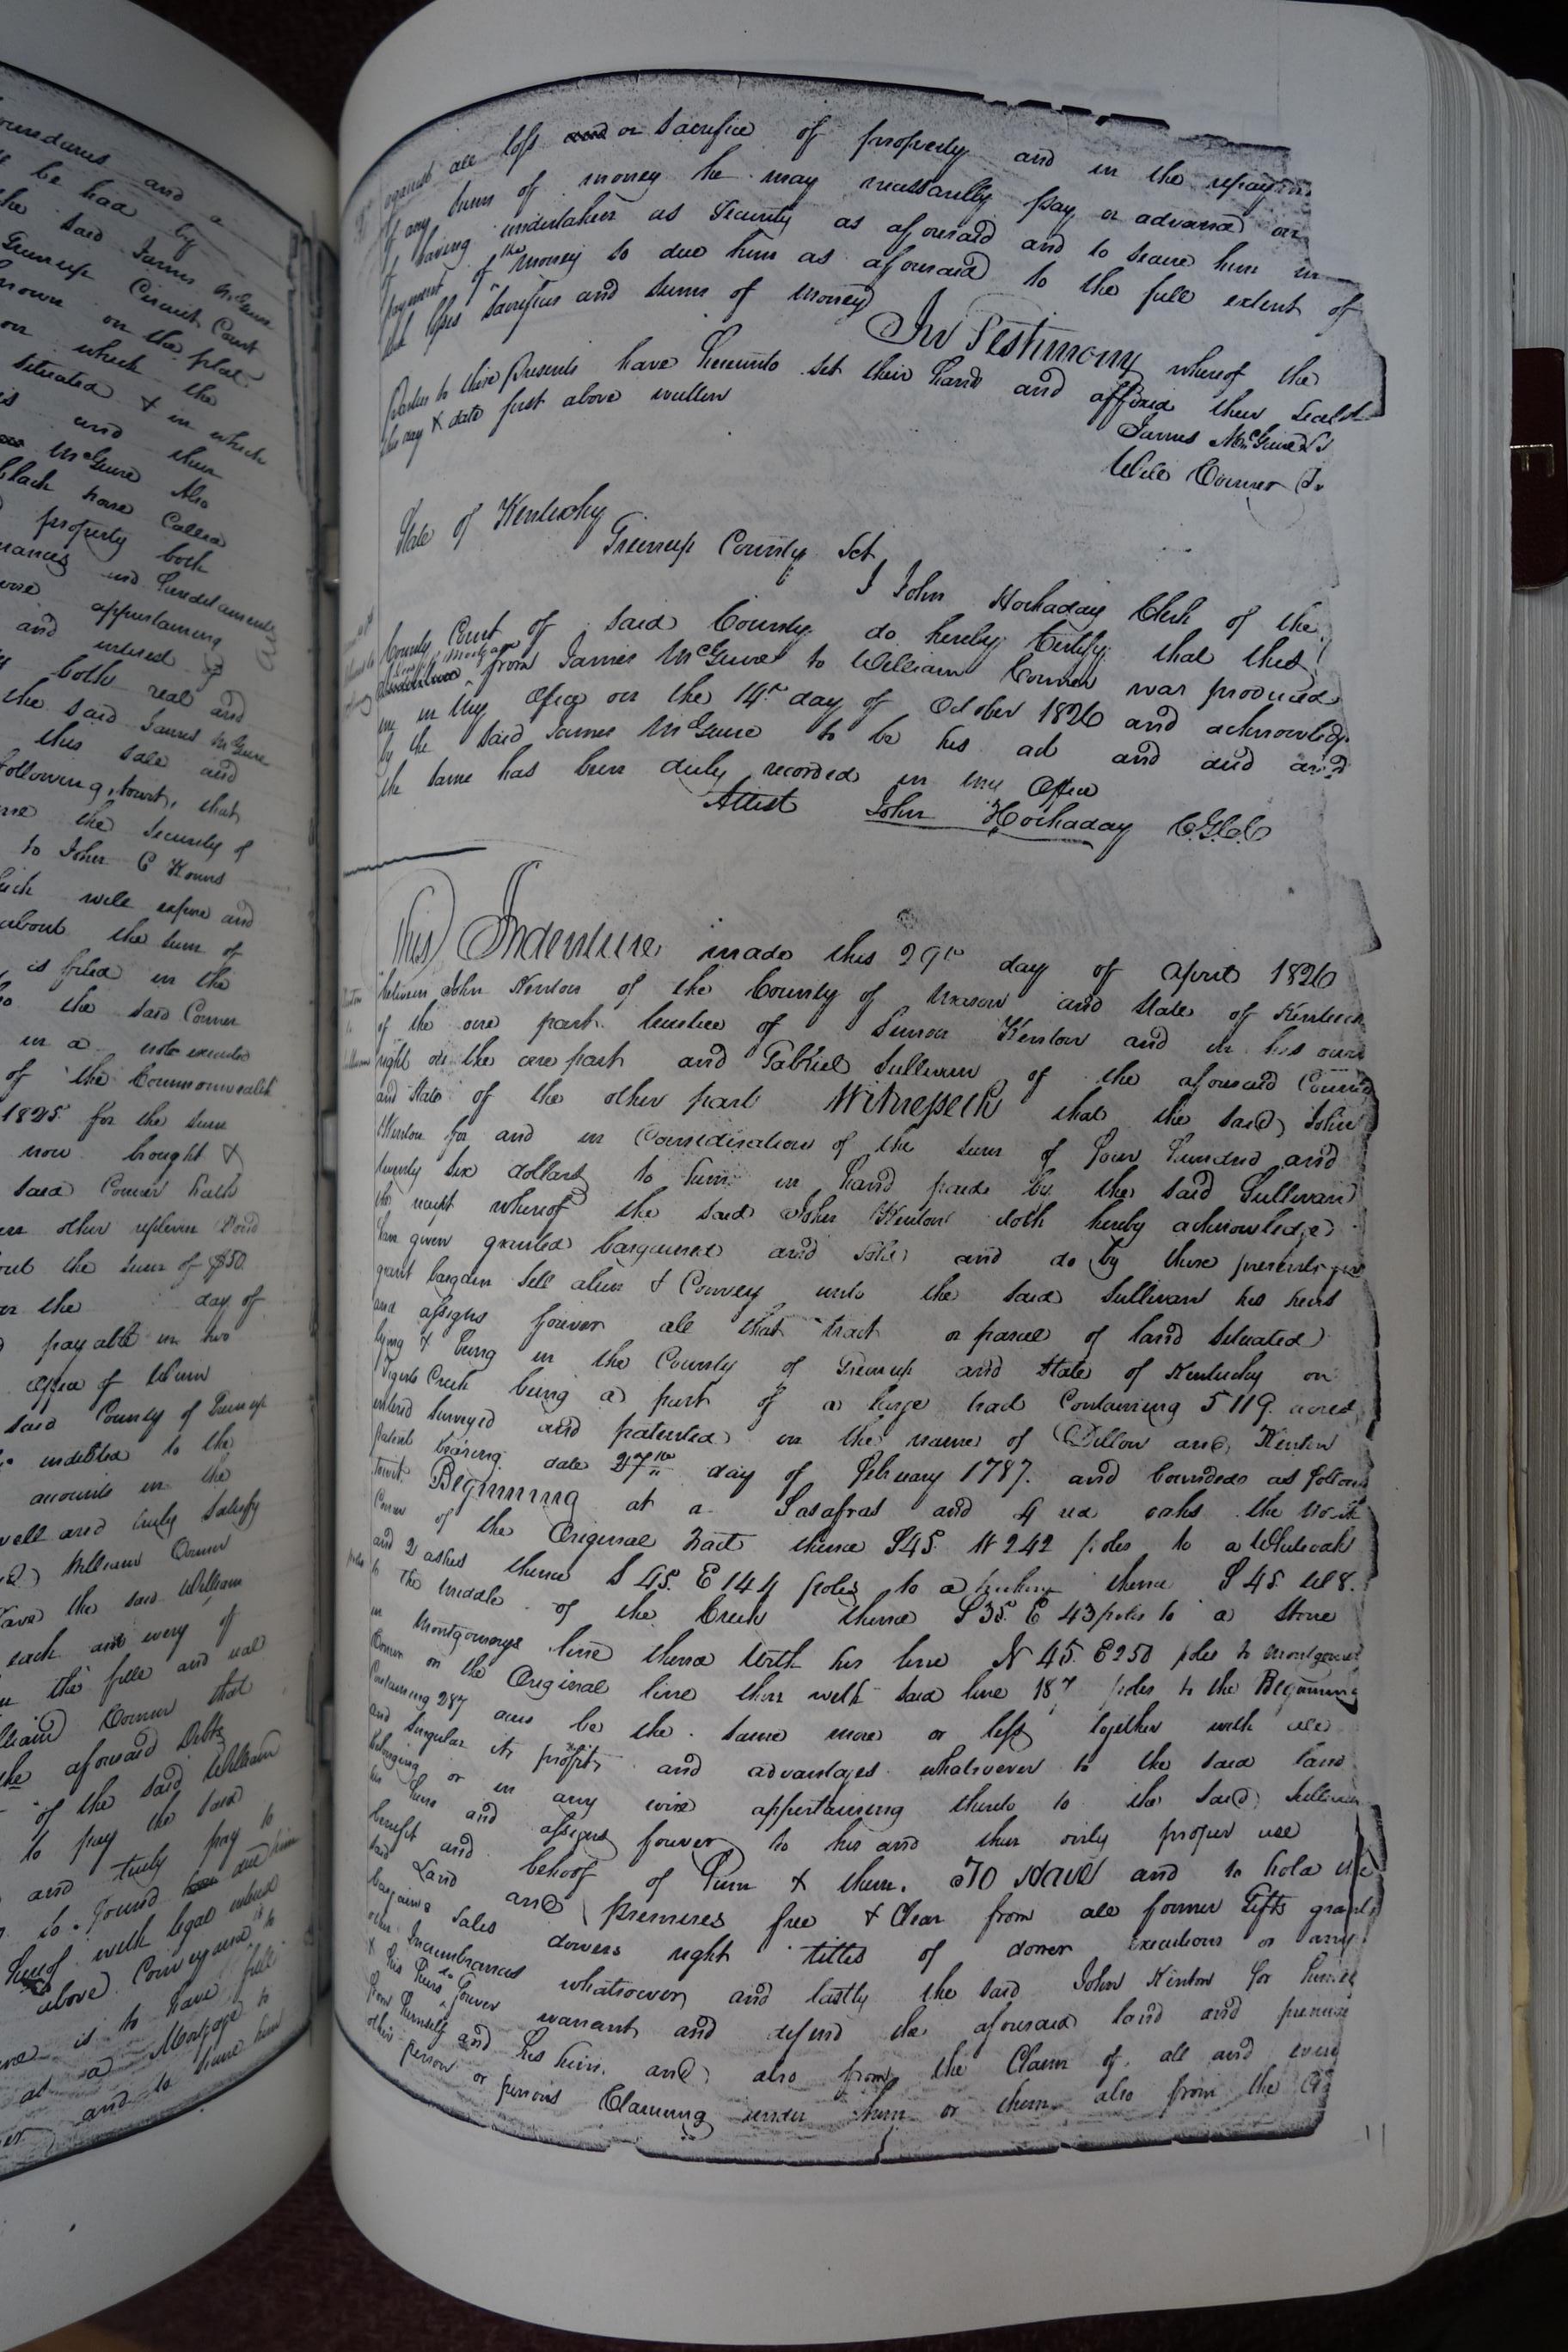 ouredures and a
be had by
the said James McGuire
Greenup Circuit Court
nown on the plat
on which the
situated & in which
is and then
McGuire Also
black horse Called
property both
nances and Heredaments
appurtaining
and interest of
both real and
the said James McGuire
this sale and
following, towit, that
the Security of
to John C Kouns
which will expire and
about the sum of
is filed in the
the said Conner
in a note executed
of the Commonwealth
1825 for the sum
now brought &
said Conner hath
other replevin Bond
out the sum of $50
on the day of
payable in two
office of
said County of Greenup
indebted to the
accounts in the
well and truly Satisfy
William Conner
have the said William
each and every of
the full and
William Conner that
the aforesaid Debts
of the said William
to pay the said
and truly pay to
so found due him
thereof with legal interest
above Conveyance is to
is to have full
as a Mortgage to
and to
against all loss and or Sacrifice of property and in the repaying
of any sums of money he may necessarily pay or advance on
of having undertaken as Security as aforesaid and to secure him in
payment of the money so due him as aforesaid to the full extent of
such losses Sacrifices and sums of money In Testimony whereof the
Parties to these Presents have hereunto set their hands and affixed their seals
this day & date first above written
James McGuire Ls
Will Conner Ls
State of Kentucky
Greenup County Sct
I John Hockaday Clerk of the
County Court of said County do hereby Certify that this
Deed of Mortgage
Indenture from James McGuire to William Conner was produced
in my office on the 14th day of October 1826 and acknowledged
by the said James McGuire to be his act and deed and
the same has been duly recorded in my Office
Attest John Hockaday C.G.C.C
This Indenture made this 29th day of April 1826
between John Kenton of the County of Mason and State of Kentucky
of the one part trustee of Simon Kenton and in his own
right on the one part and Gabriel Sullivan of the aforesaid County
and State of the other part Witnesseth that the said John
Kenton for and in Consideration of the sum of four hundred and
twenty six dollars to him in hand paid by the said Sullivan
the receipt whereof the said John Kenton doth hereby acknowledge
have given granted bargained and sold and do by these presents give
grant bargain sell alien & Convey unto the said Sullivan his heirs
and assigns forever all that tract or parcel of land situated
lying & being in the County of Greenup and State of Kentucky on
Tigerts Creek being a part of a large tract Containing 5119 acres
entered surveyed and patented in the name of Dillow and Kenton
patent bearing date 27th day of February 1787 and bounded as follows
towit Beginning at a Sasafras and 4 red oaks the North
Corner of the Original tract thence S45 W 242 poles to a Whiteoak
and 2 ashes thence S 45 E 144 poles to a thence S 45 W 8
poles to the middle of the Creek thence S 35 E 43 poles to a stone
in Montgomerys line thence with his line N 45 E 250 poles to Montgomerys
Corner on the Original line then with said line 187 poles to the Beginning
Containing 287 acres be the same more or less together with all
and singular its profits and advantages whatsoever to the said land
belonging or in any wise appertaining thereto to the said Sullivan
his heirs and assigns forever to his and their only proper use
benefit and behoof of him & them. To have and to hold the
said Land and Premises free & Clear from all former Gifts grants
bargains Sales dowers right titles of dower executions or any
other Incumbrances whatsoever and lastly the said John Kenton for himself
& his heirs do forever warrant and defend the aforesaid land and premises
from himself and his heirs and also from the Claim of all and every
other person or persons Claiming under him or them also from the